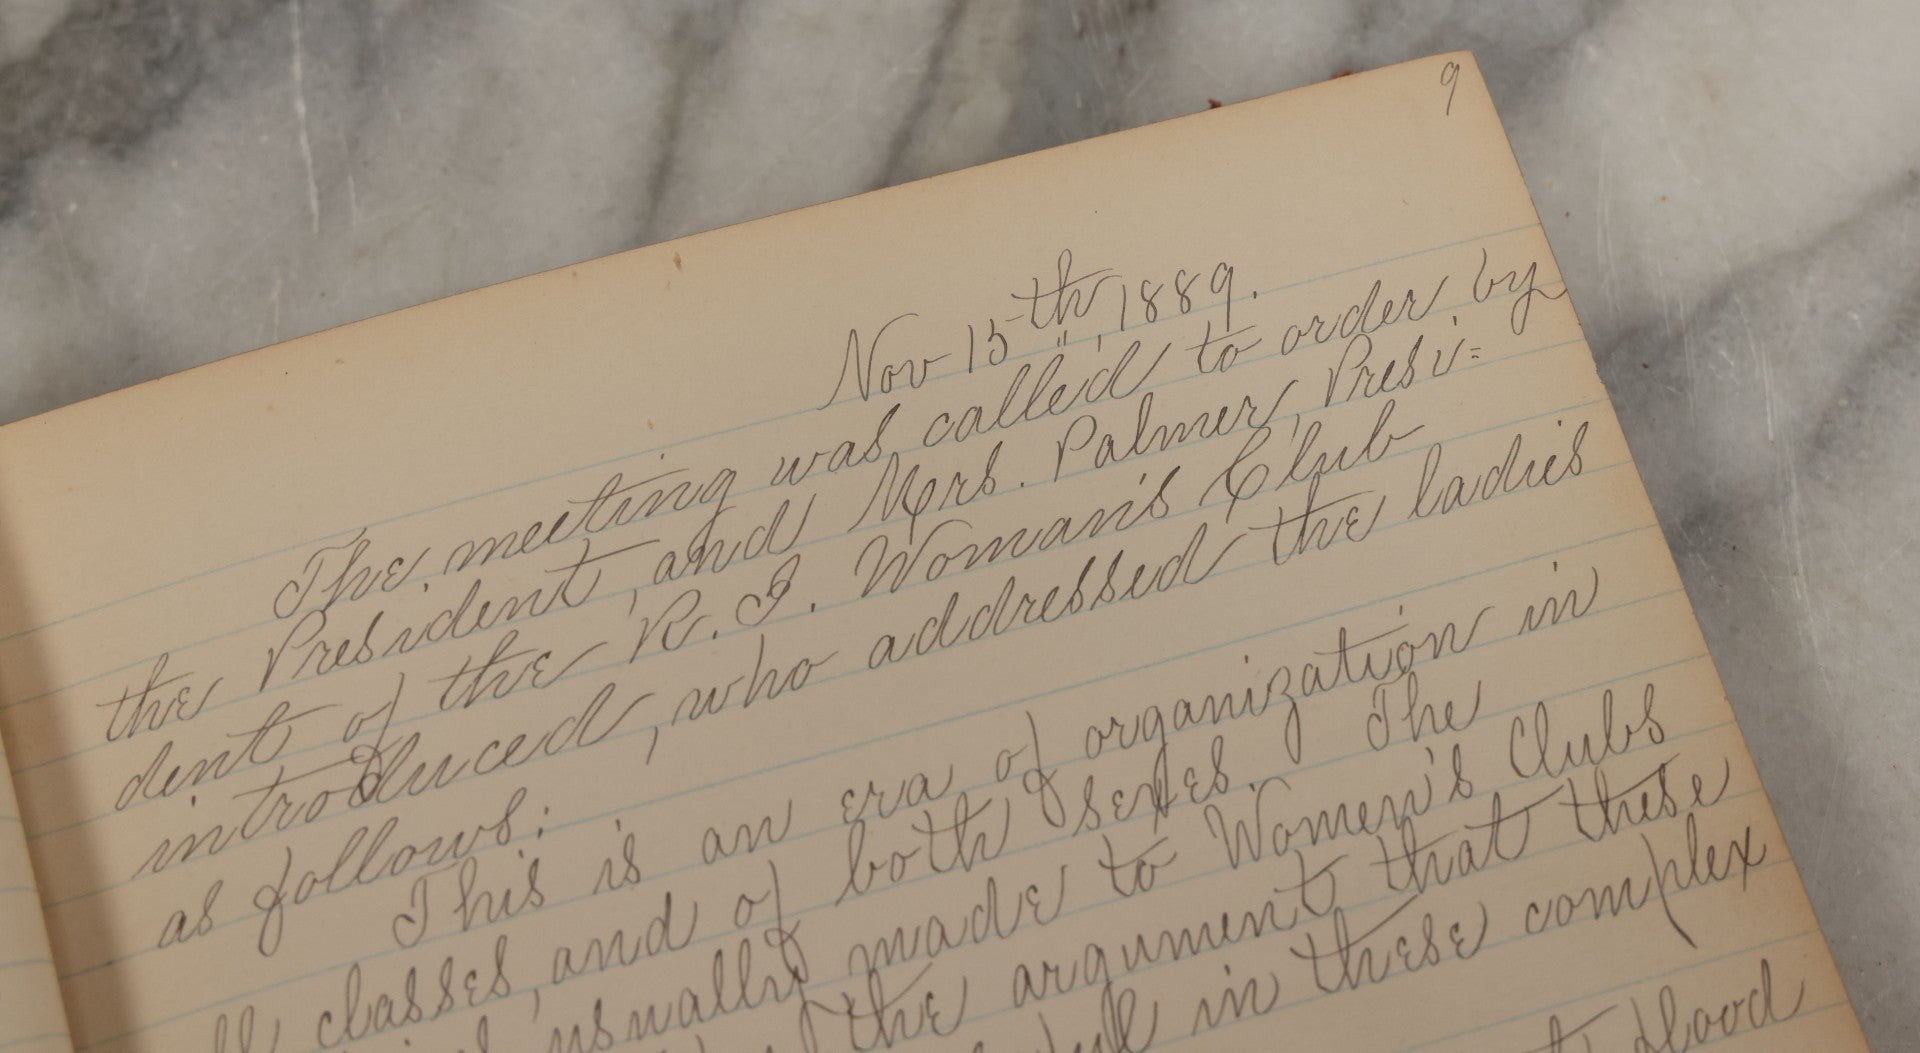 9
Nov 15th, 1889.
The meeting was called to order by
the President, and Mrs. Palmer, Presi=
dent of the R. I. Woman's Club
introduced, who addressed the ladies
as follows:
This is an era of organization in
all classes, and of both sexes. The
usually made to Women's Clubs
the argument that these
in these complex
flood